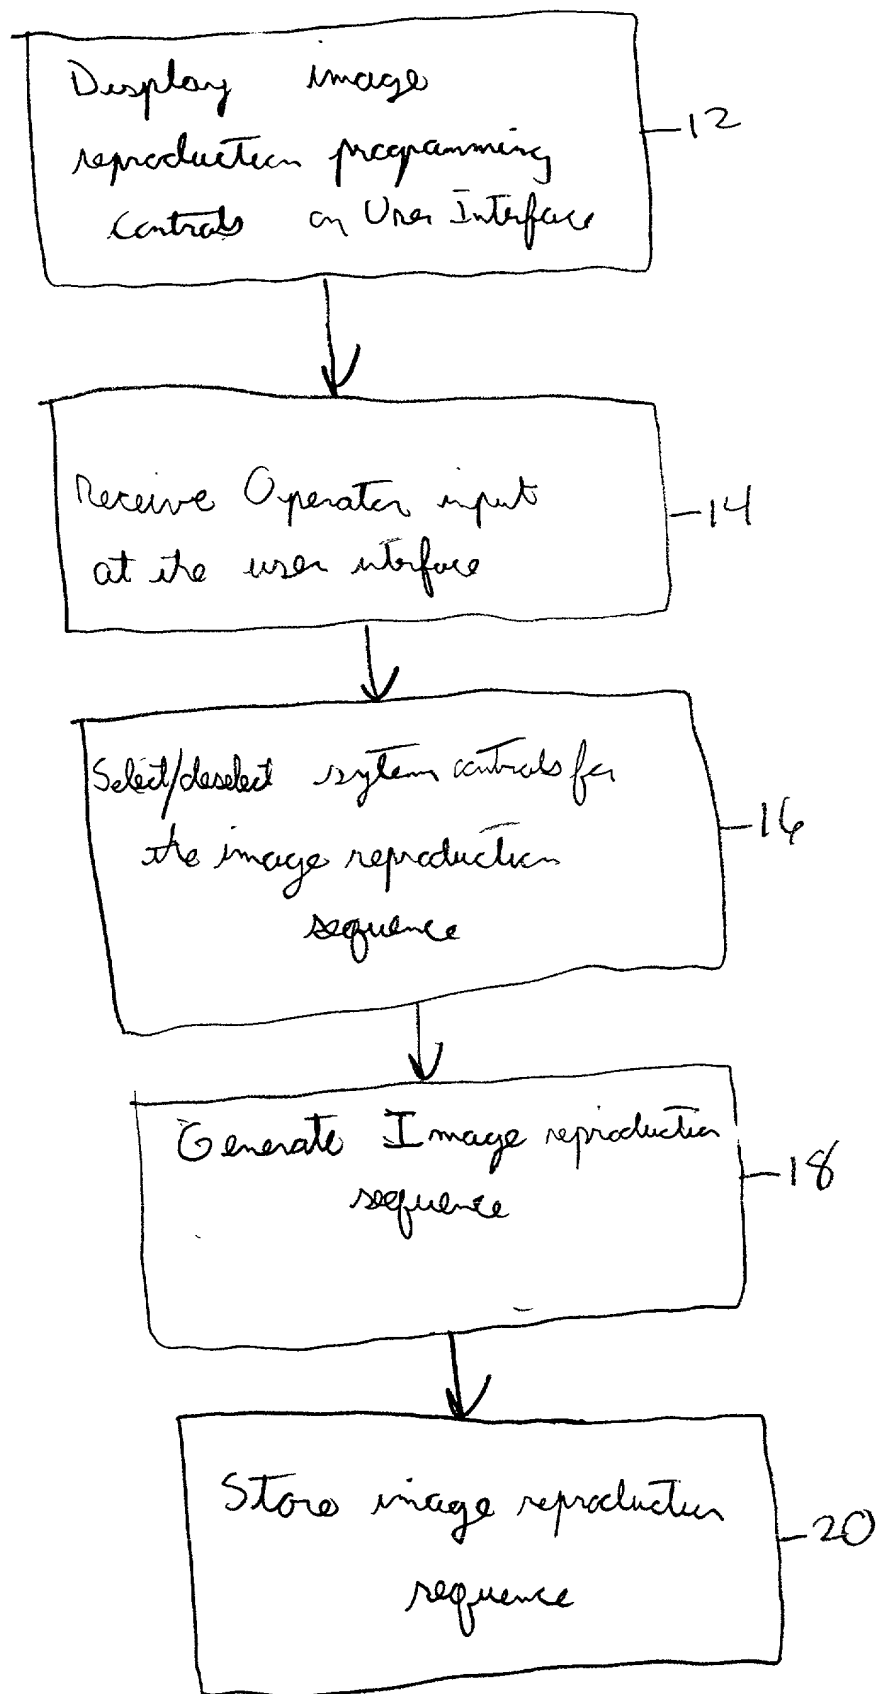 Display image
reproduction programming
controls on User Interface
12
Receive Operator input
at the user interface
14
Select/deselect sytem controls for
the image reproduction
sequence
16
Generate Image reproduction
sequence
18
Store image reproduction
sequence
20